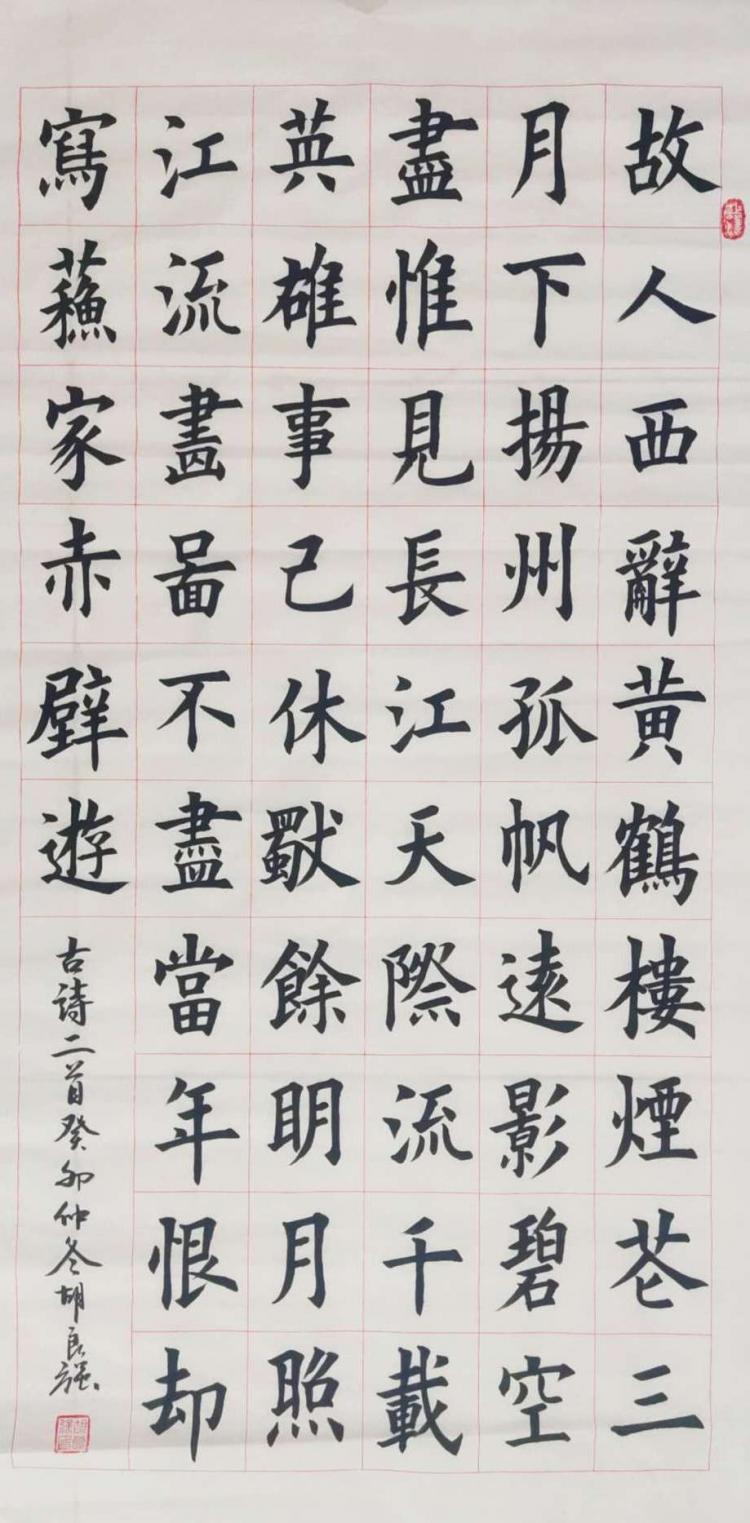 故人西辭黃鶴樓煙苍三
月下揚州孤帆遠影碧空
盡惟見長江天際流千載
英雄事已休獸餘明月照
江流畵啚不盡當年恨却
寫蘓家赤壁遊
古詩二首癸卯仲冬胡良強